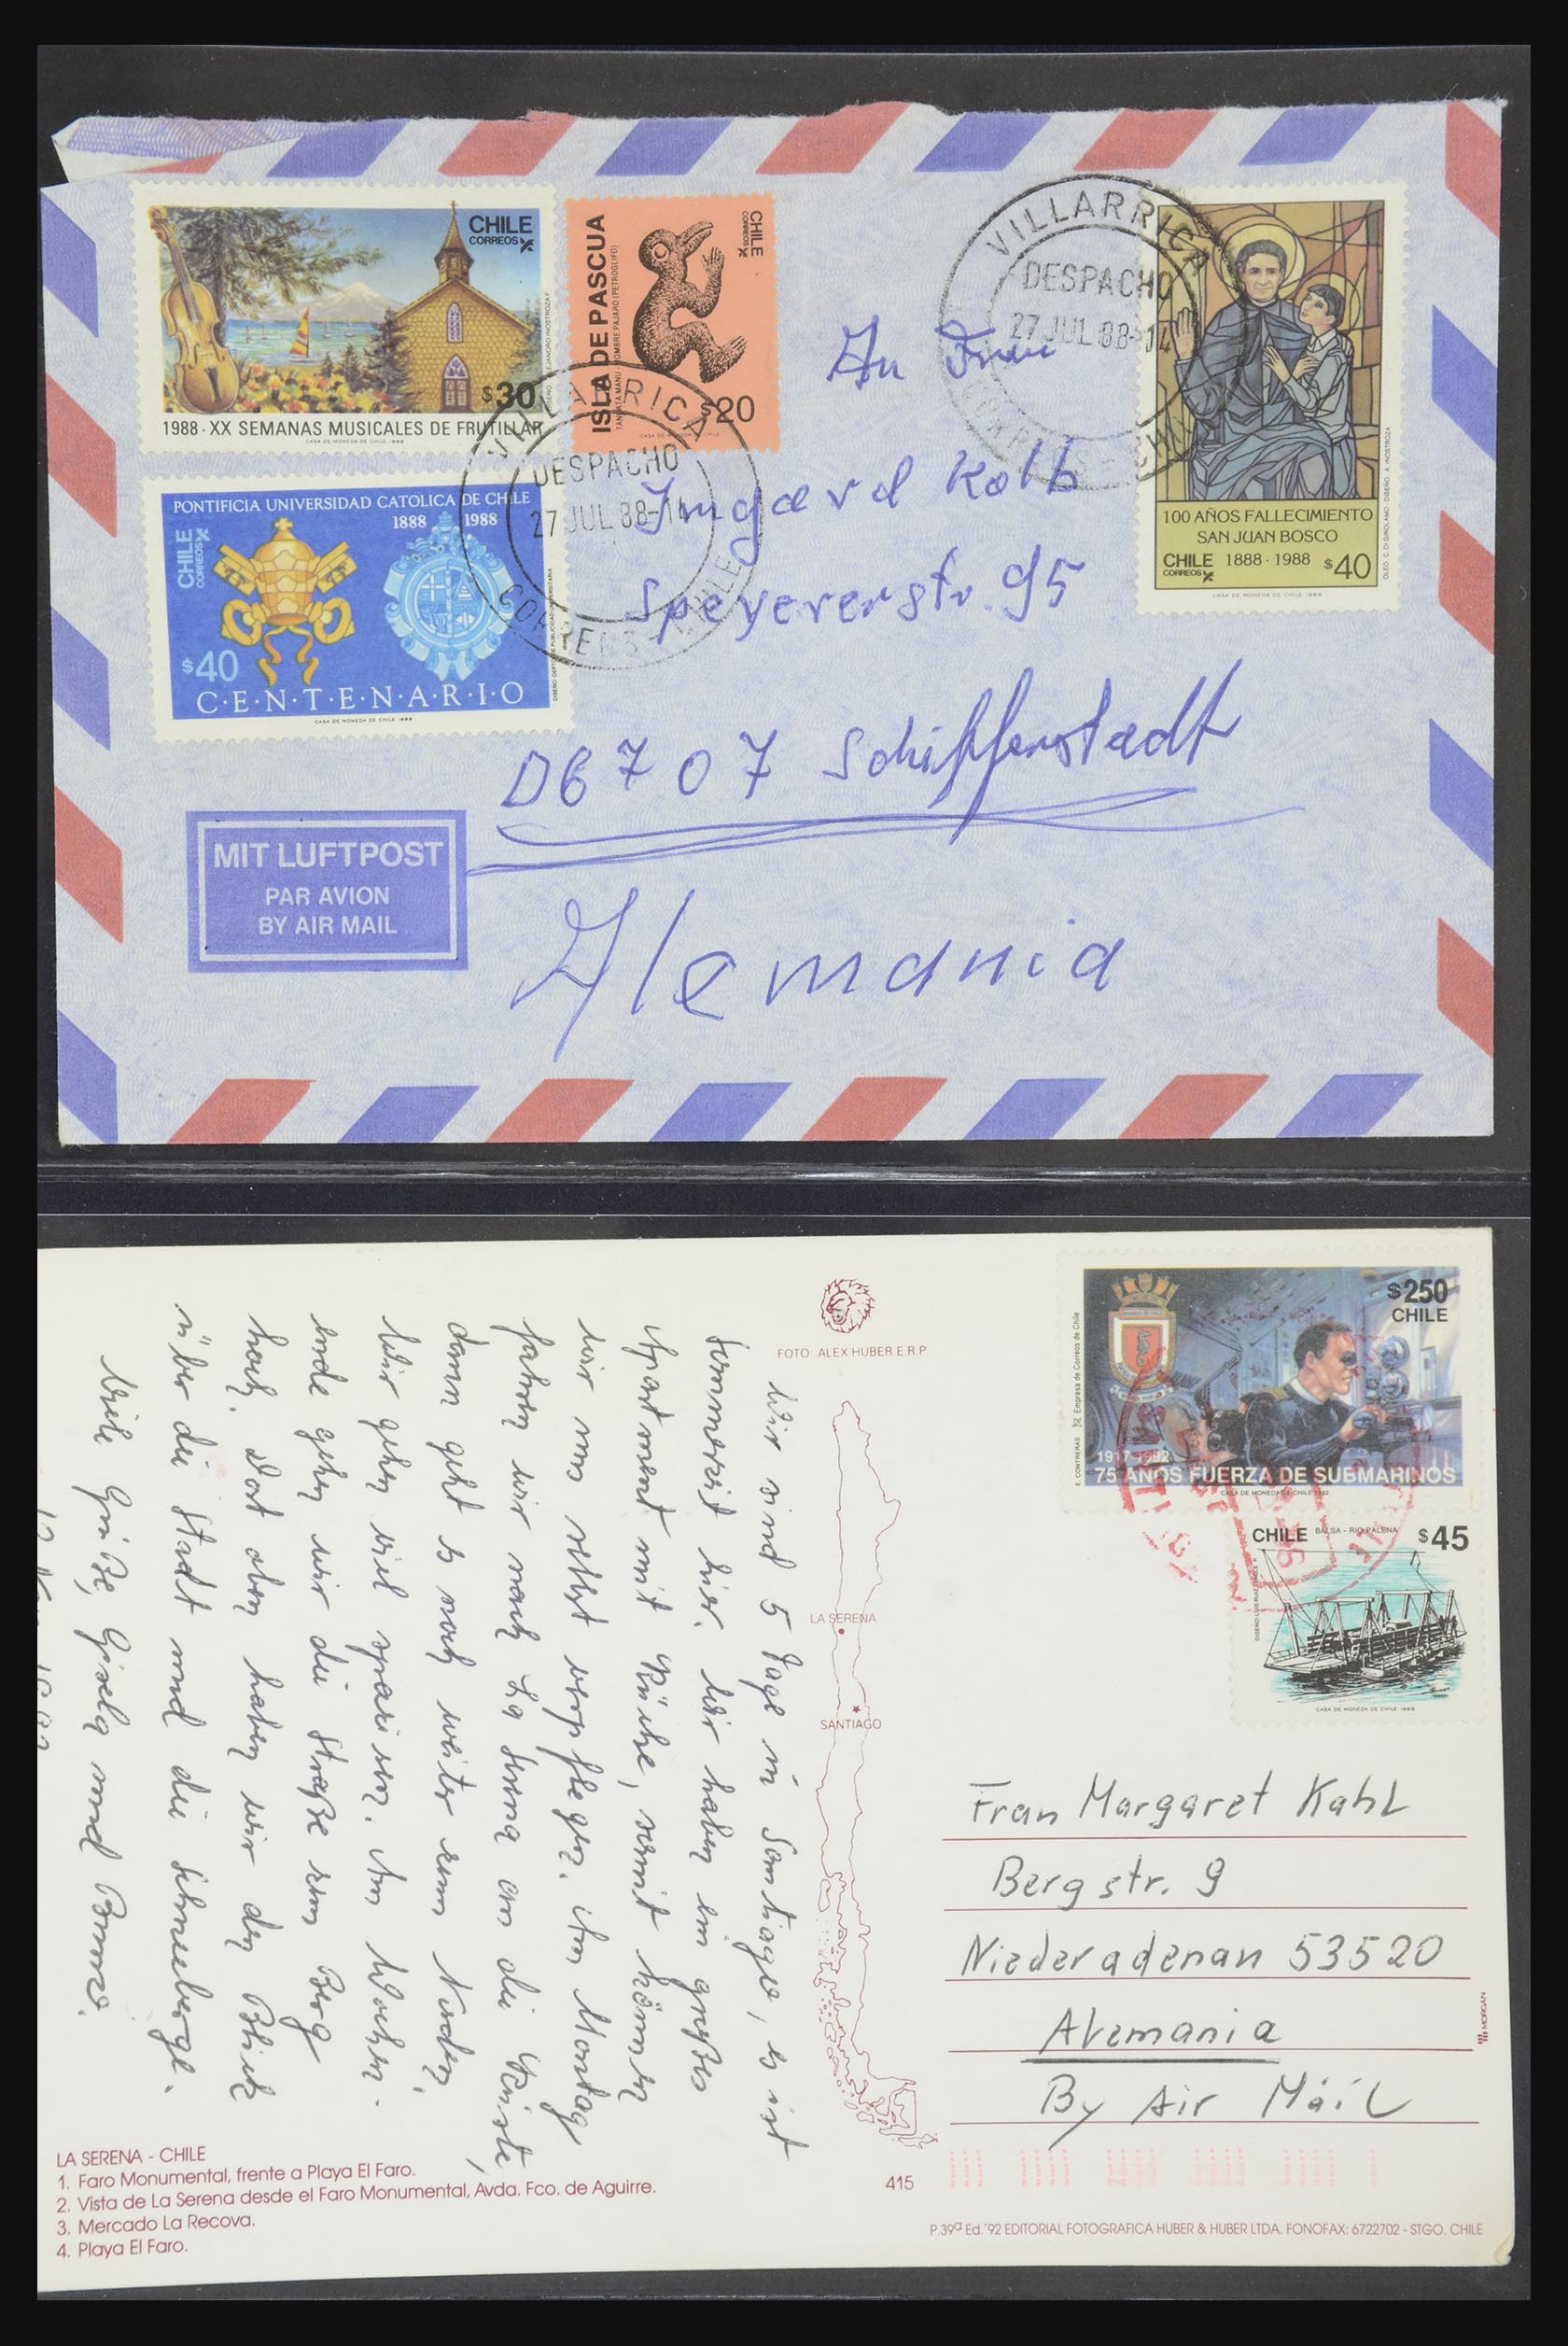 CHILE
CORREOS
$30
1988 · XX SEMANAS MUSICALES DE FRUTILLAR
CASA DE MONEDA DE CHILE 1988
ISLA DE PASCUA
TANGATA MANU - HOMBRE PAJARO (PETROGLIFO)
CHILE
CORREOS
$20
CASA DE MONEDA DE CHILE
PONTIFICIA UNIVERSIDAD CATOLICA DE CHILE
1888 1988
CHILE
CORREOS
$40
C·E·N·T·E·N·A·R·I·O
CASA DE MONEDA DE CHILE 1988
VILLARRICA
DESPACHO
27 JUL 88-14
CORREOS - CHILE
VILLARRICA
DESPACHO
27 JUL 88-14
CORREOS - CHILE
100 AÑOS FALLECIMIENTO
SAN JUAN BOSCO
CHILE 1888 · 1988 $40
CORREOS
OLEO: C. DI GIROLAMO DISEÑO: A. INOSTROZA
CASA DE MONEDA DE CHILE 1988
An Frau
Irmgard Kolb
Speyererstr. 95
D6707 Schifferstadt
Alemania
MIT LUFTPOST
PAR AVION
BY AIR MAIL
FOTO: ALEX HUBER E.R.P.
Wir sind 5 Tage in Santiago, es ist
Sommerzeit hier. Wir haben ein großes
Apartment mit Küche, somit können
wir uns selbst verpflegen. Am Montag
fahren wir nach La Serena an die Küste,
dann geht es noch weiter zum Norden.
Wir gehen viel spazieren. Am Wochen-
ende gehen wir die Straße zum Berg
hoch. Dort oben haben wir den Blick
über die Stadt und die Schneeberge.
Viele Grüße, Gisela und
LA SERENA
SANTIAGO
$250
CHILE
E. CONTRERAS Empresa de Correos de Chile
1917-1992
75 AÑOS FUERZA DE SUBMARINOS
CASA DE MONEDA DE CHILE 1992
CHILE BALSA - RIO PALENA $45
CASA DE MONEDA DE CHILE 1988
Frau Margaret Kahl
Bergstr. 9
Niederadenau 53520
Alemania
By Air Mail
MORGAN
LA SERENA - CHILE
1. Faro Monumental, frente a Playa El Faro.
2. Vista de La Serena desde el Faro Monumental, Avda. Fco. de Aguirre.
3. Mercado La Recova.
4. Playa El Faro.
415
P.39ª Ed.'92 EDITORIAL FOTOGRAFICA HUBER & HUBER LTDA. FONOFAX: 6722702 - STGO. CHILE